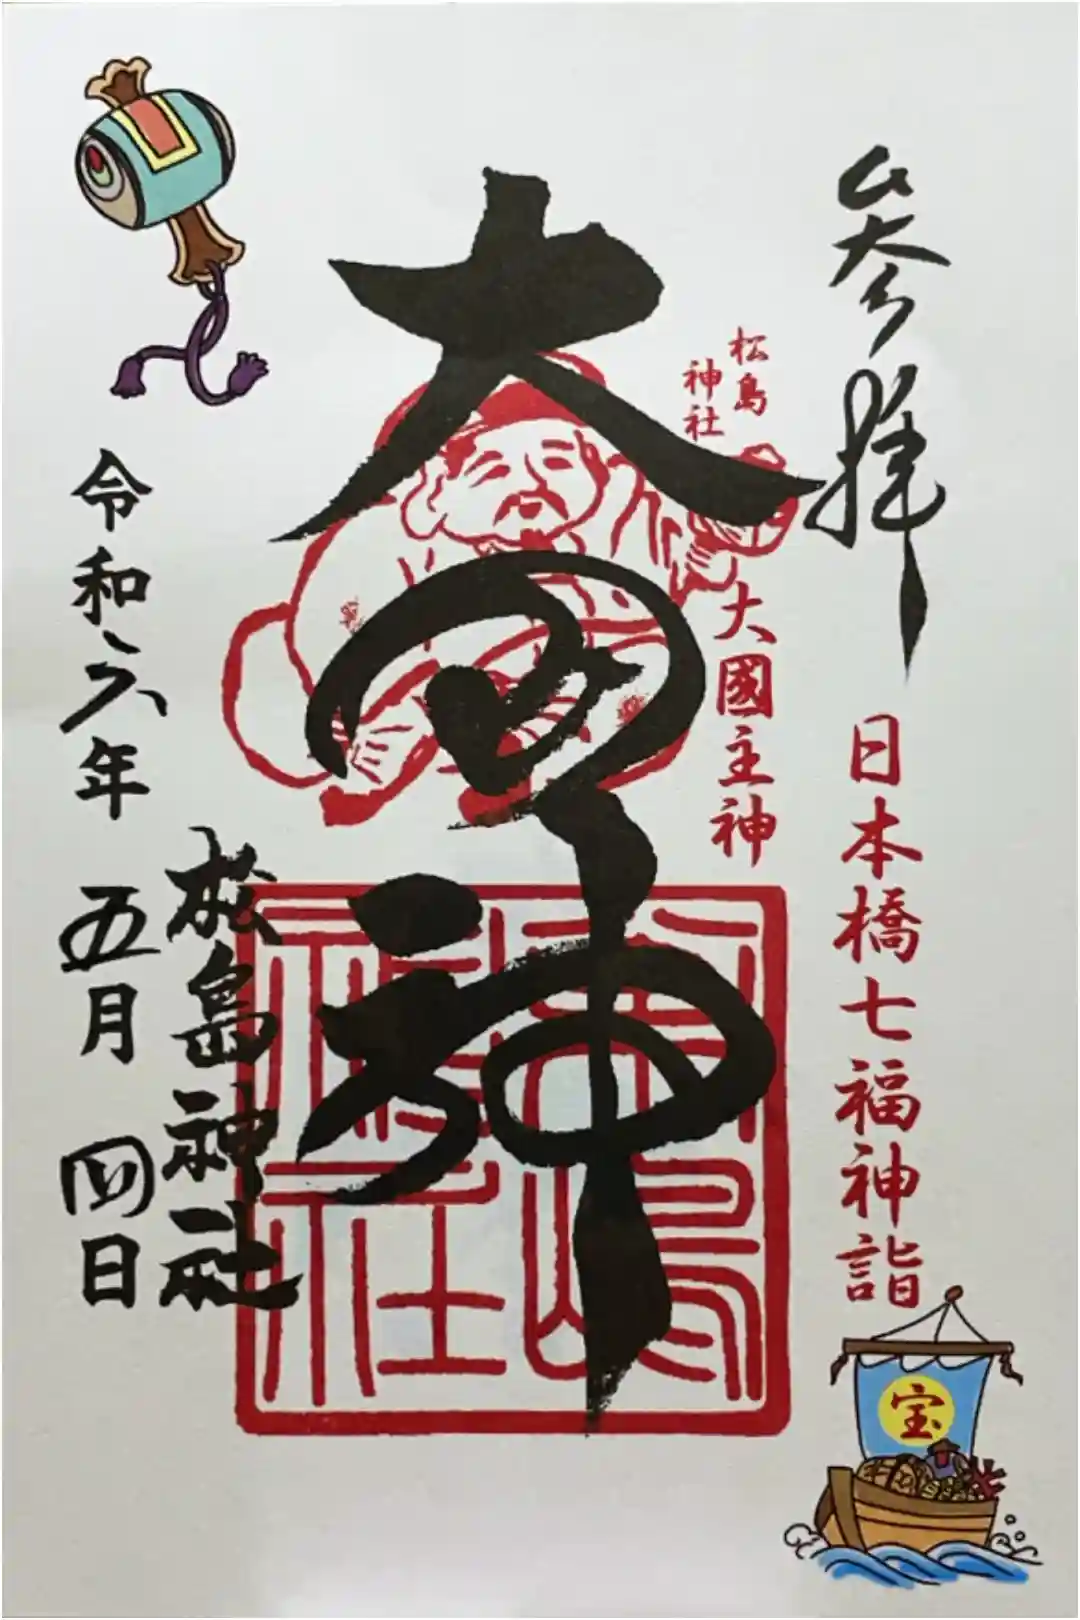 参拝
日本橋七福神詣
宝
松島
神社
大國主神
大国神
松嶋
神社
松島神社
令和六年 五月 四日